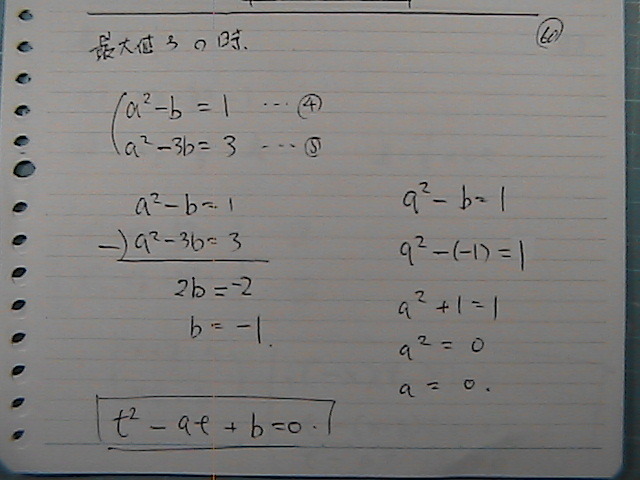 最大値3の時.
60
a²-b=1 … ④
a²-3b=3 … ⑤
a²-b=1
-) a²-3b=3
2b=-2
b=-1.
a²-b=1
a²-(-1)=1
a²+1=1
a²=0
a=0.
t²-at+b=0.